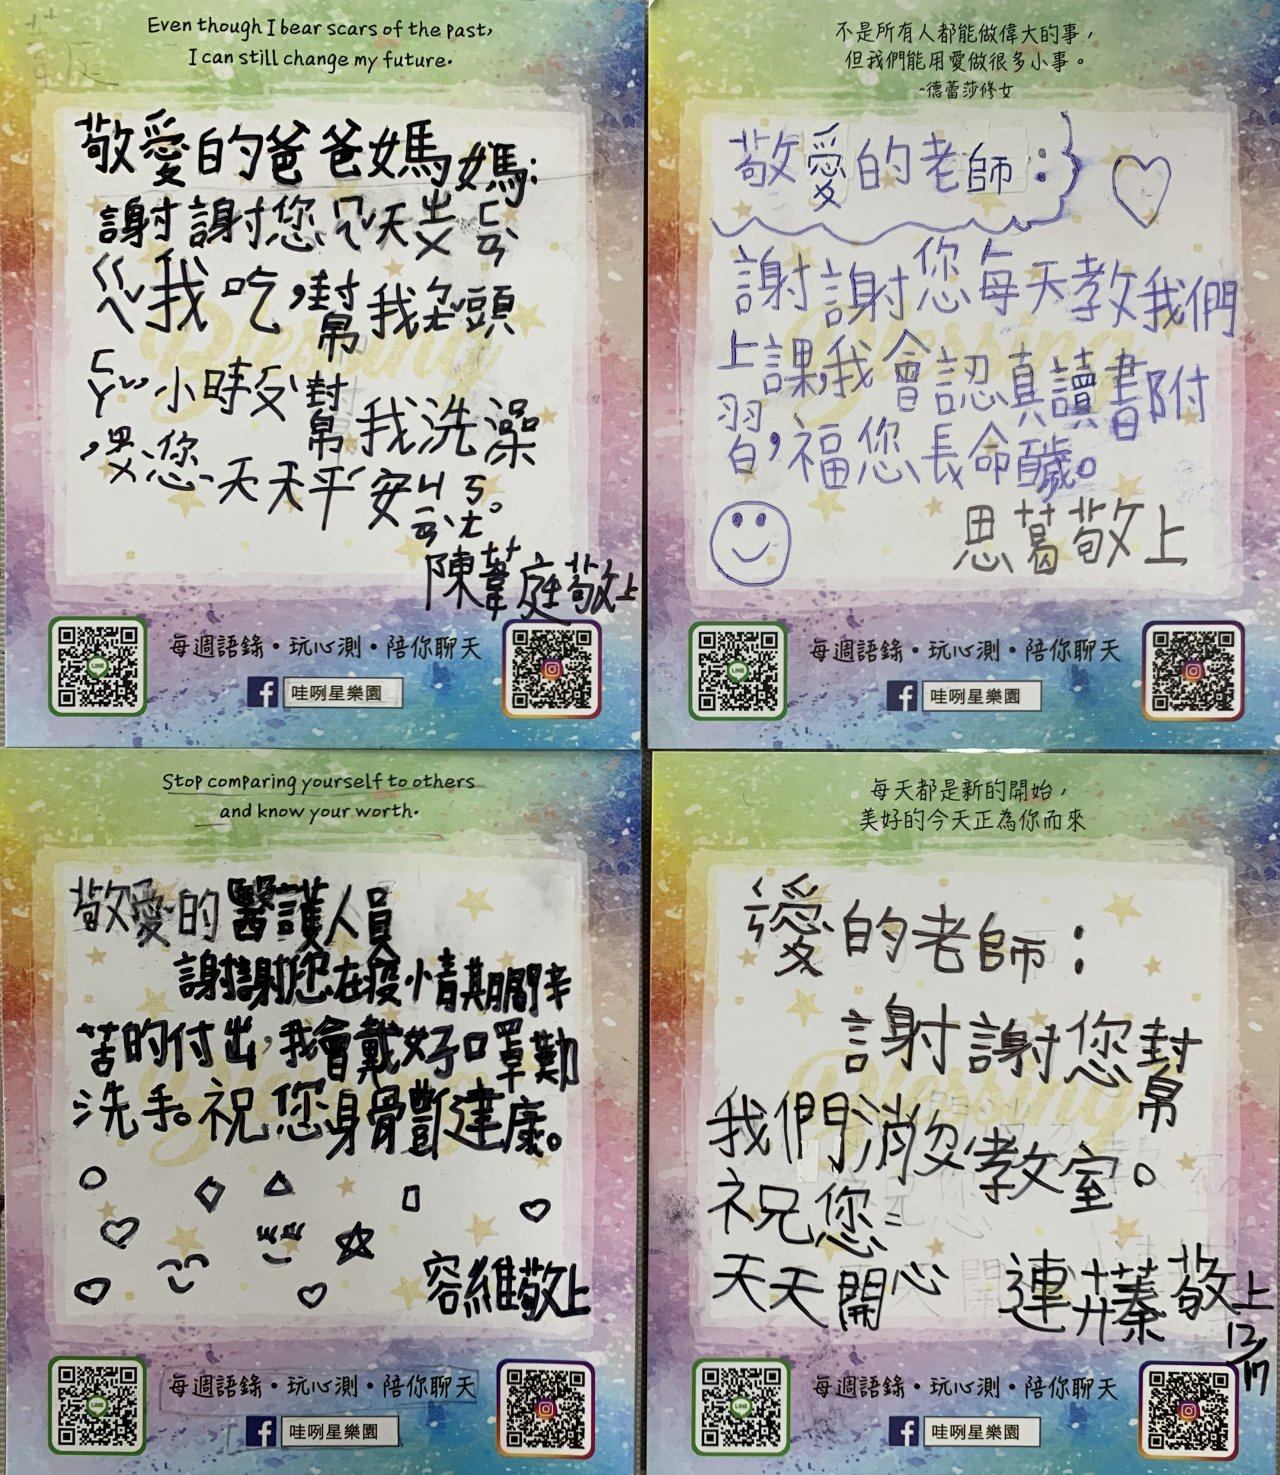 Even though I bear scars of the past,
I can still change my future.
敬愛的爸爸媽媽:
謝謝您ㄇㄟˇ天ㄓㄨˇㄈㄢˋ
ㄍㄟˇ我吃,幫我
頭
ㄈㄚˇ,小時候幫我洗澡
,ㄓㄨˋ您天天平安
陳葦庭敬上
每週語錄・玩心測・陪你聊天
哇咧星樂園
不是所有人都能做偉大的事,
但我們能用愛做很多小事。
~德蕾莎修女
敬愛的老師:
謝謝您每天教我們
上課,我會認真讀書
習,福您長命
思葛敬上
每週語錄・玩心測・陪你聊天
哇咧星樂園
Stop comparing yourself to others
and know your worth.
敬愛的醫護人員
謝謝您在疫情期間辛
苦的付出,我會戴好口罩勤
洗手。祝您身體健康。
容維敬上
每週語錄・玩心測・陪你聊天
哇咧星樂園
每天都是新的開始,
美好的今天正為你而來
愛的老師:
謝謝您幫
我們消ㄉㄨˊ教室。
祝您:
天天開心
連
蓁敬上
12/17
每週語錄・玩心測・陪你聊天
哇咧星樂園